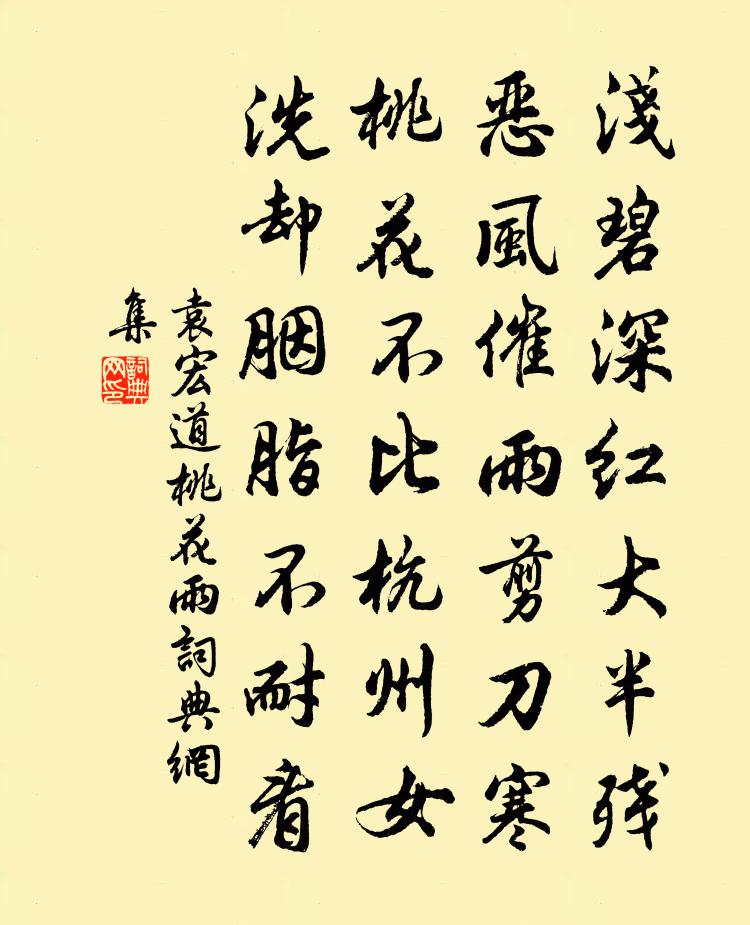 淺碧深紅大半残
惡風催雨剪刀寒
桃花不比杭州女
洗却胭脂不耐看
袁宏道桃花雨詞典網
集
詞典
网印